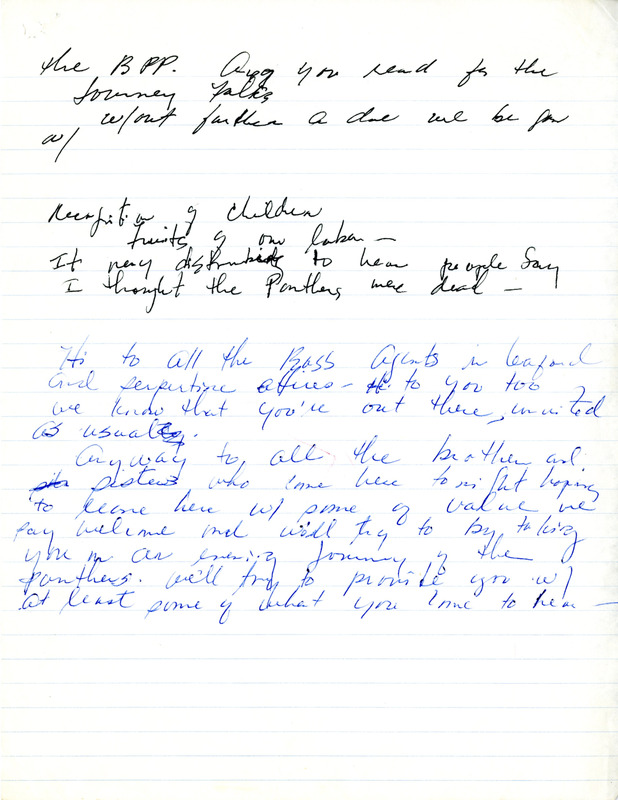 the BPP. Are you read for the
Journey talks
w/out further a due we be gin
w/
Recognition of children
fruits of our labor —
It very to hear people say
I thought the Panthers were dead —
Hi to all the Agents in
and serpertine - Hi to you too,
we know that you're out there, invited
as usual.
Anyway to all the brothers and
sisters who come here tonight hoping
to leave here w/ some of value we
say welcome and will try to by taking
you on an evening Journey of the
panthers. we'll try to provide you w/
at least some of what you come to hear —